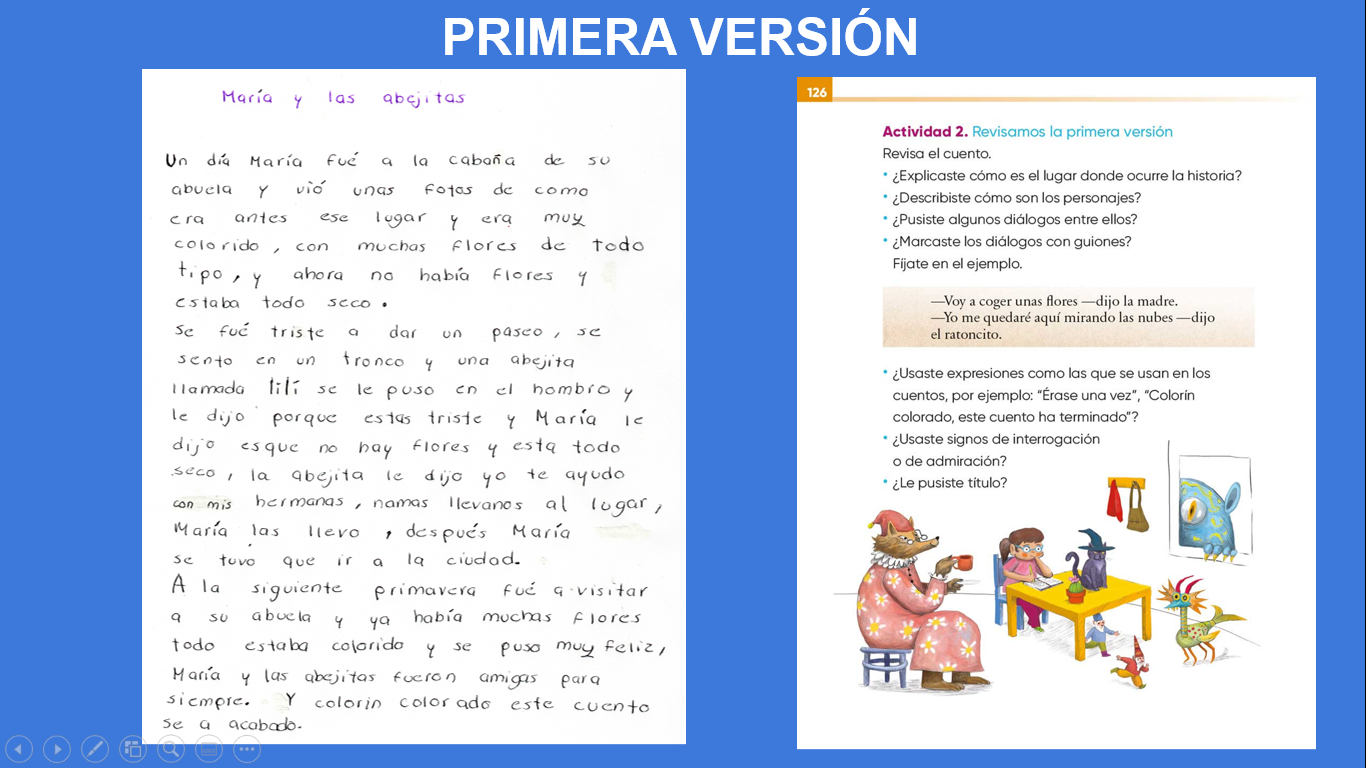 PRIMERA VERSIÓN
María y las abejitas
Un día María fué a la cabaña de su
abuela y vió unas fotos de como
era antes ese lugar y era muy
colorido, con muchas flores de todo
tipo, y ahora no había flores y
estaba todo seco.
Se fué triste a dar un paseo, se
sento en un tronco y una abejita
llamada lilí se le puso en el hombro y
le dijo porque estas triste y María le
dijo esque no hay flores y esta todo
seco, la abejita le dijo yo te ayudo
con mis hermanas, namas llevanos al lugar,
María las llevo, después María
se tuvo que ir a la ciudad.
A la siguiente primavera fué a visitar
a su abuela y ya había muchas flores
todo estaba colorido y se puso muy feliz,
María y las abejitas fueron amigas para
siempre. Y colorin colorado este cuento
se a acabado.
126
Actividad 2. Revisamos la primera versión
Revisa el cuento.
• ¿Explicaste cómo es el lugar donde ocurre la historia?
• ¿Describiste cómo son los personajes?
• ¿Pusiste algunos diálogos entre ellos?
• ¿Marcaste los diálogos con guiones?
Fíjate en el ejemplo.
—Voy a coger unas flores —dijo la madre.
—Yo me quedaré aquí mirando las nubes —dijo
el ratoncito.
• ¿Usaste expresiones como las que se usan en los
cuentos, por ejemplo: “Érase una vez”, “Colorín
colorado, este cuento ha terminado”?
• ¿Usaste signos de interrogación
o de admiración?
• ¿Le pusiste título?